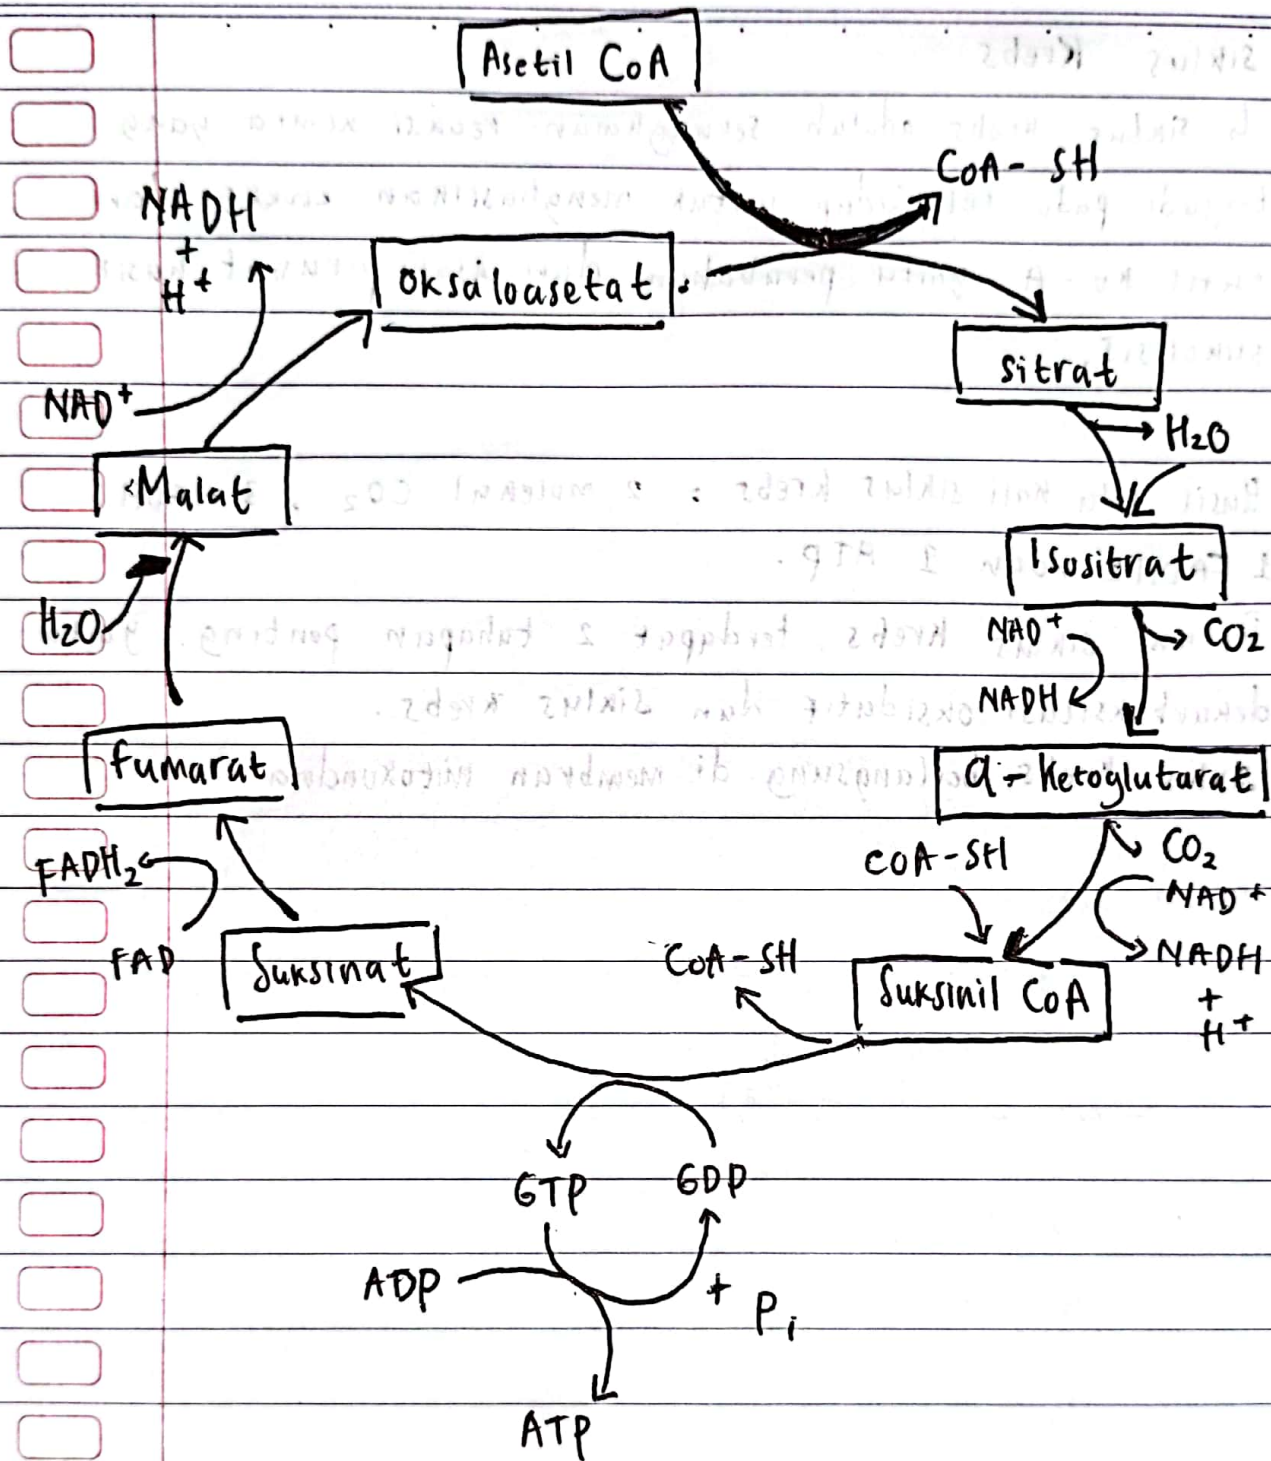 Asetil CoA
CoA-SH
NADH
+
H+
Oksaloasetat
Sitrat
NAD+
H2O
Malat
Isositrat
H2O
NAD+
CO2
NADH
Fumarat
α-Ketoglutarat
FADH2
CoA-SH
CO2
NAD+
FAD
Suksinat
CoA-SH
Suksinil CoA
NADH
+
H+
GTP
GDP
ADP
+
Pi
ATP